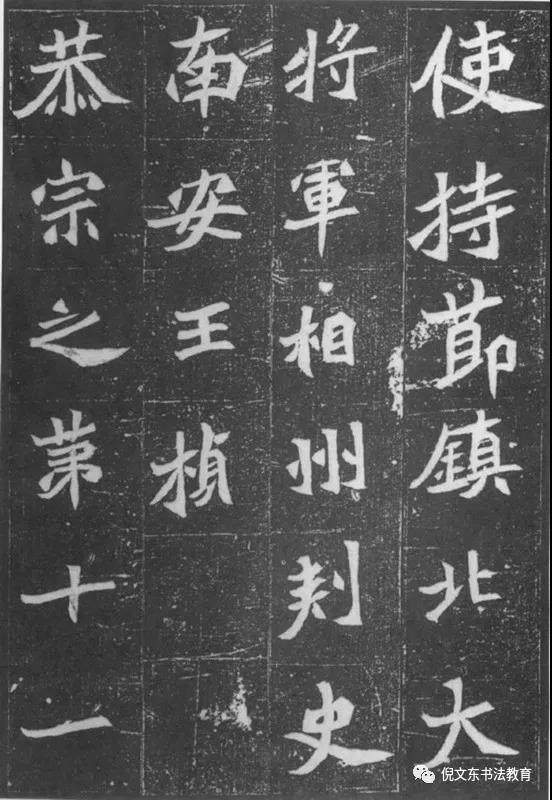 使持節鎮北大
將軍相州刺史
南安王楨
恭宗之第十一
倪文东书法教育